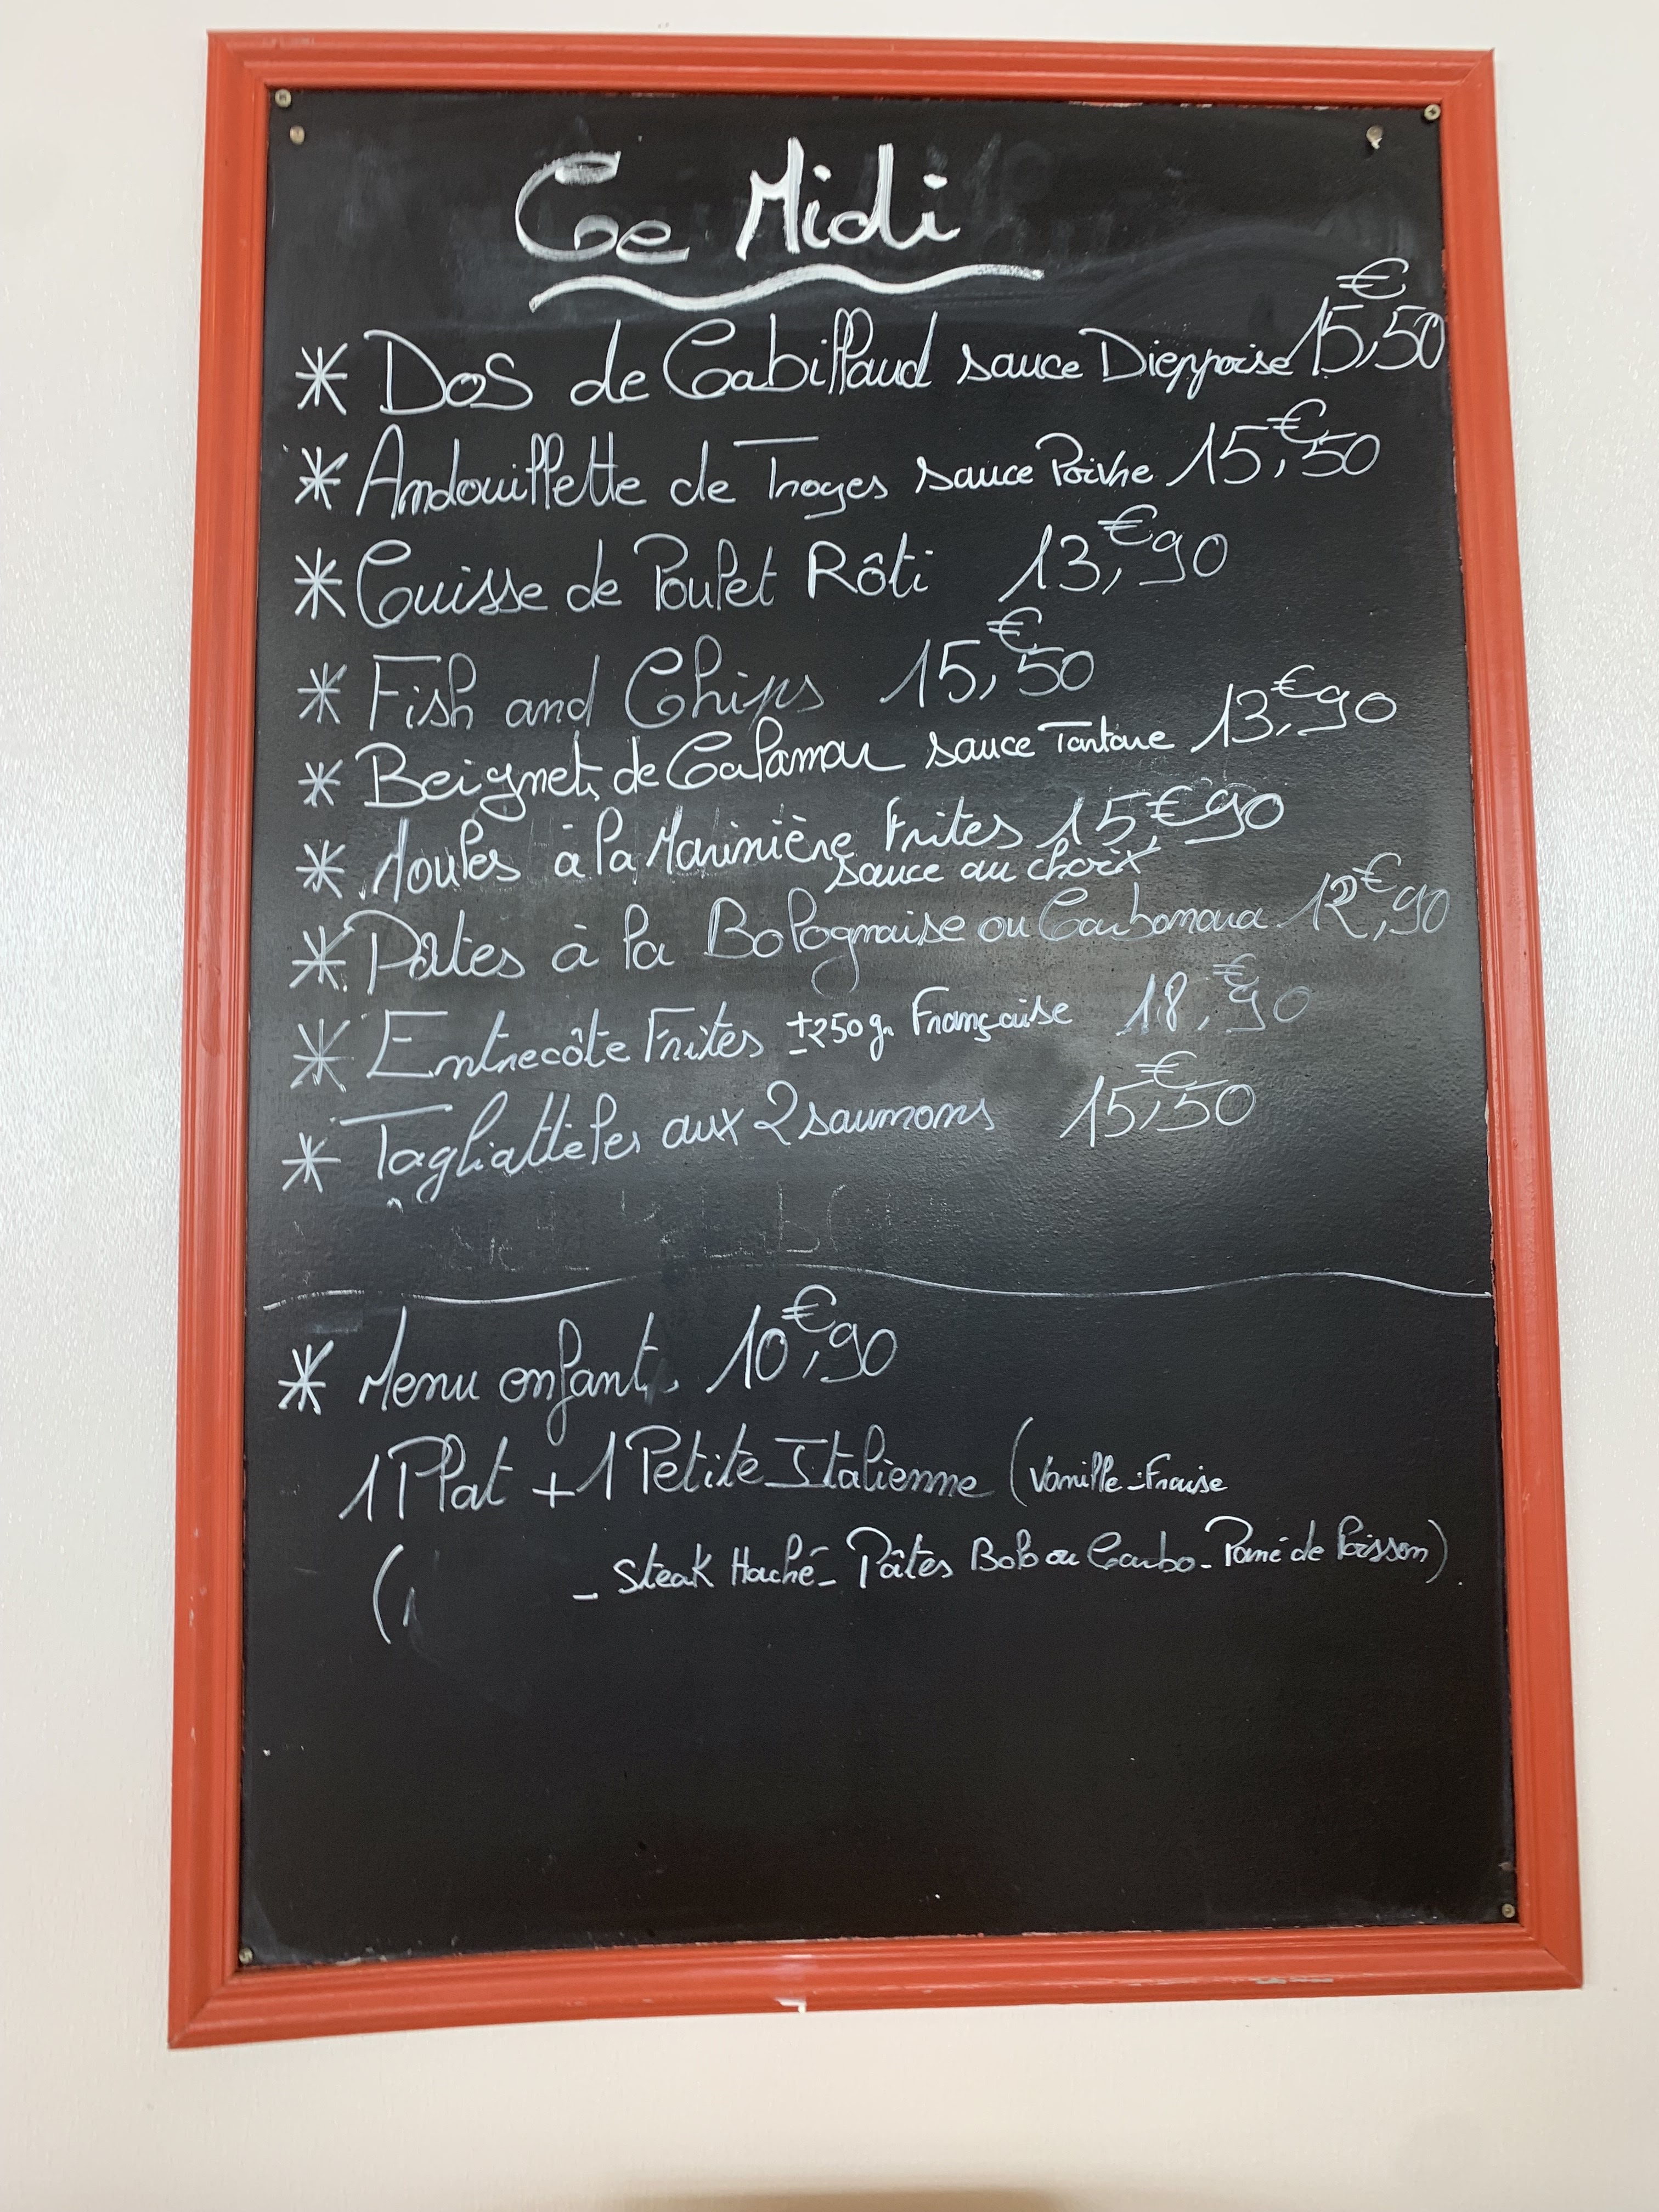 Ce Midi
* Dos de Cabillaud sauce Dieppoise 15,€50
* Andouillette de Troyes sauce Poivre 15,€50
* Cuisse de Poulet Rôti 13,€90
* Fish and Chips 15,€50
* Beignets de Calamar sauce Tartare 13,€90
* Moules à la Marinière Frites 15,€90
sauce au choix
* Pâtes à la Bolognaise ou Carbonara 12,€90
* Entrecôte Frites ±250gr Française 18,€90
* Tagliattelles aux 2 saumons 15,€50
* Menu enfant 10,€90
1 Plat + 1 Petite Italienne (Vanille-Fraise
( - Steak Haché - Pâtes Bolo ou Carbo - Pané de Poisson)